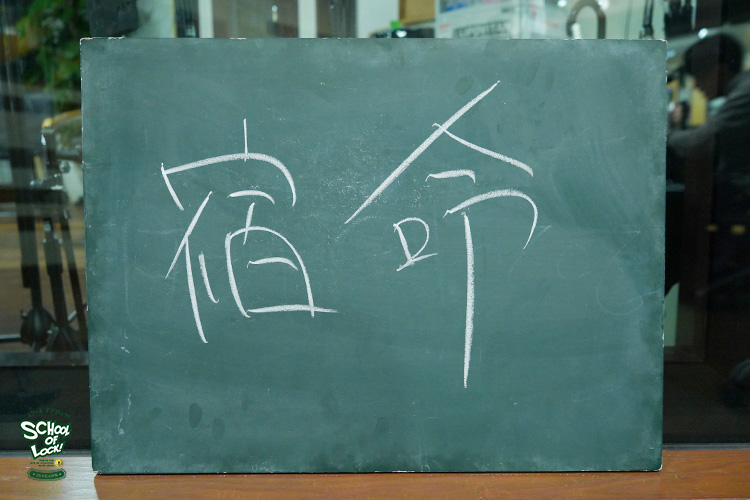 宿命
SCHOOL
OF
LOCK!